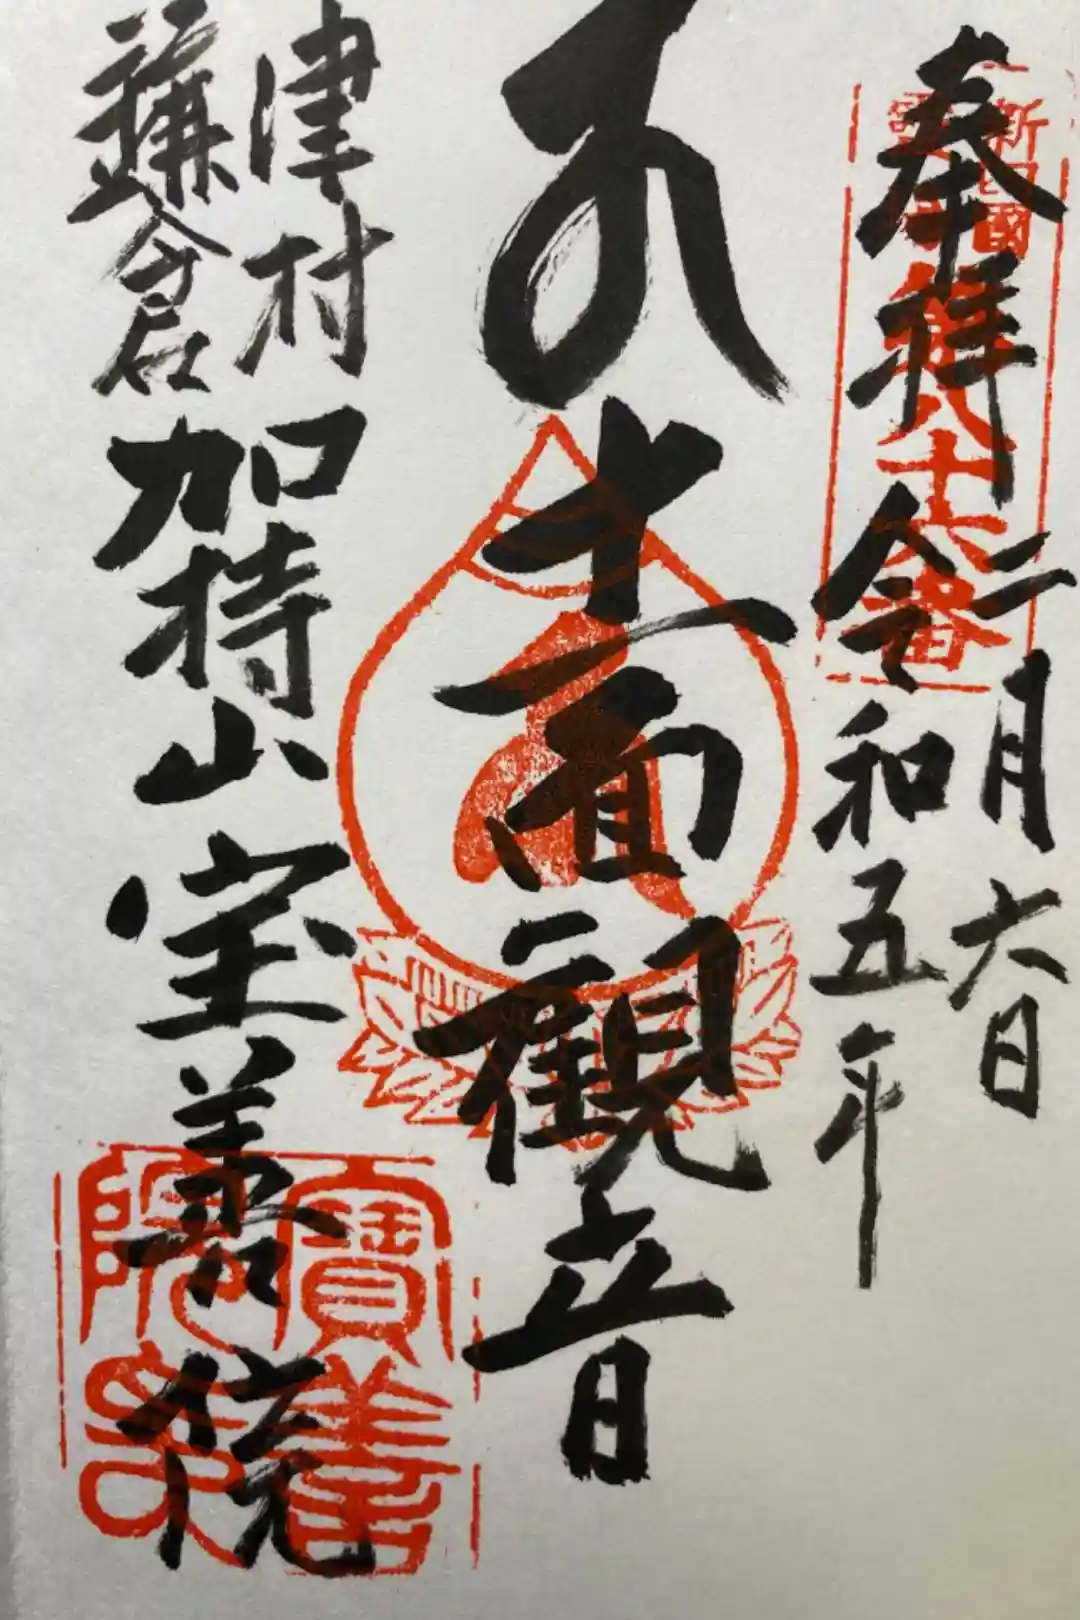 奉拝
令和五年
二月六日
十一面観音
津村
鎌倉
加持山
宝善院
新四国
八十六番
寶善
院